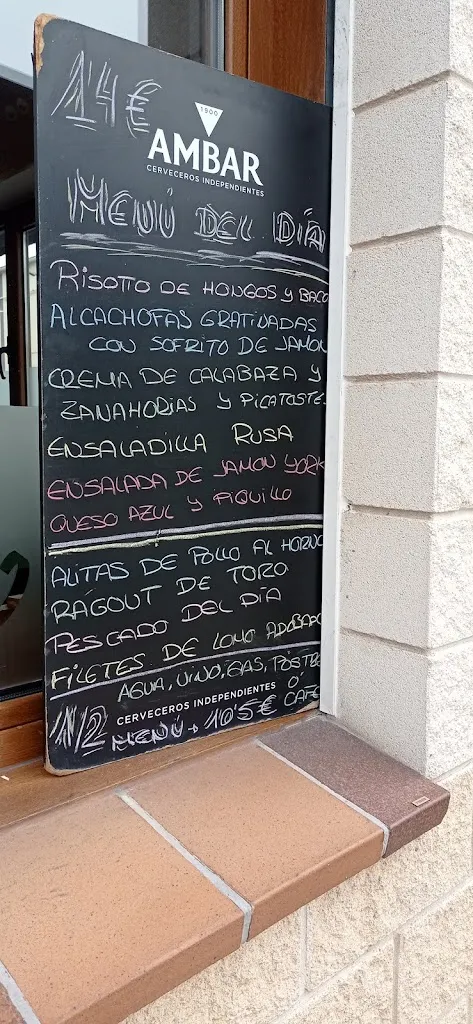 14€
1900
AMBAR
CERVECEROS INDEPENDIENTES
MENÚ DEL DÍA
RISOTTO DE HONGOS Y BACO
ALCACHOFAS GRATINADAS
CON SOFRITO DE JAMON
CREMA DE CALABAZA Y
ZANAHORIAS Y PICATOSTES
ENSALADILLA RUSA
ENSALADA DE JAMON YORK
QUESO AZUL Y PIQUILLO
ALITAS DE POLLO AL HORNO
RAGOUT DE TORO
PESCADO DEL DIA
FILETES DE LOMO ADOBADO
AGUA, VINO, GAS, POSTRE
CERVECEROS INDEPENDIENTES
Ó CAFE
1/2 MENÚ → 10'5€